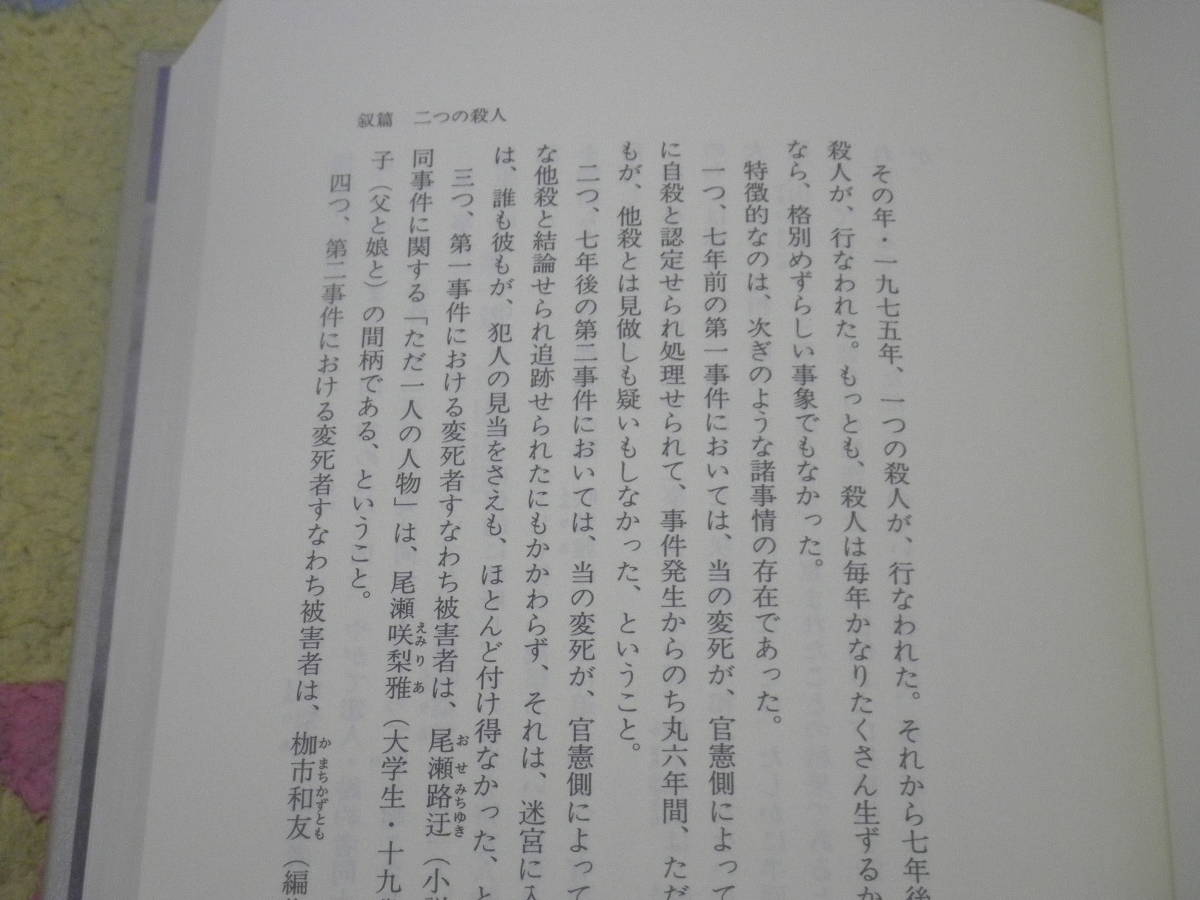 叙篇　二つの殺人
その年・一九七五年、一つの殺人が、行なわれた。それから七年後
殺人が、行なわれた。もっとも、殺人は毎年かなりたくさん生ずるか
なら、格別めずらしい事象でもなかった。
特徴的なのは、次ぎのような諸事情の存在であった。
一つ、七年前の第一事件においては、当の変死が、官憲側によって
に自殺と認定せられ処理せられて、事件発生からのち丸六年間、ただ
もが、他殺とは見做しも疑いもしなかった、ということ。
二つ、七年後の第二事件においては、当の変死が、官憲側によって
な他殺と結論せられ追跡せられたにもかかわらず、それは、迷宮に入
は、誰も彼もが、犯人の見当をさえも、ほとんど付け得なかった、と
三つ、第一事件における変死者すなわち被害者は、尾瀬路迂（小説
おせみちゆき
同事件に関する「ただ一人の人物」は、尾瀬咲梨雅（大学生・十九
えみりあ
子（父と娘と）の間柄である、ということ。
四つ、第二事件における変死者すなわち被害者は、枷市和友（編
かまちかずとも